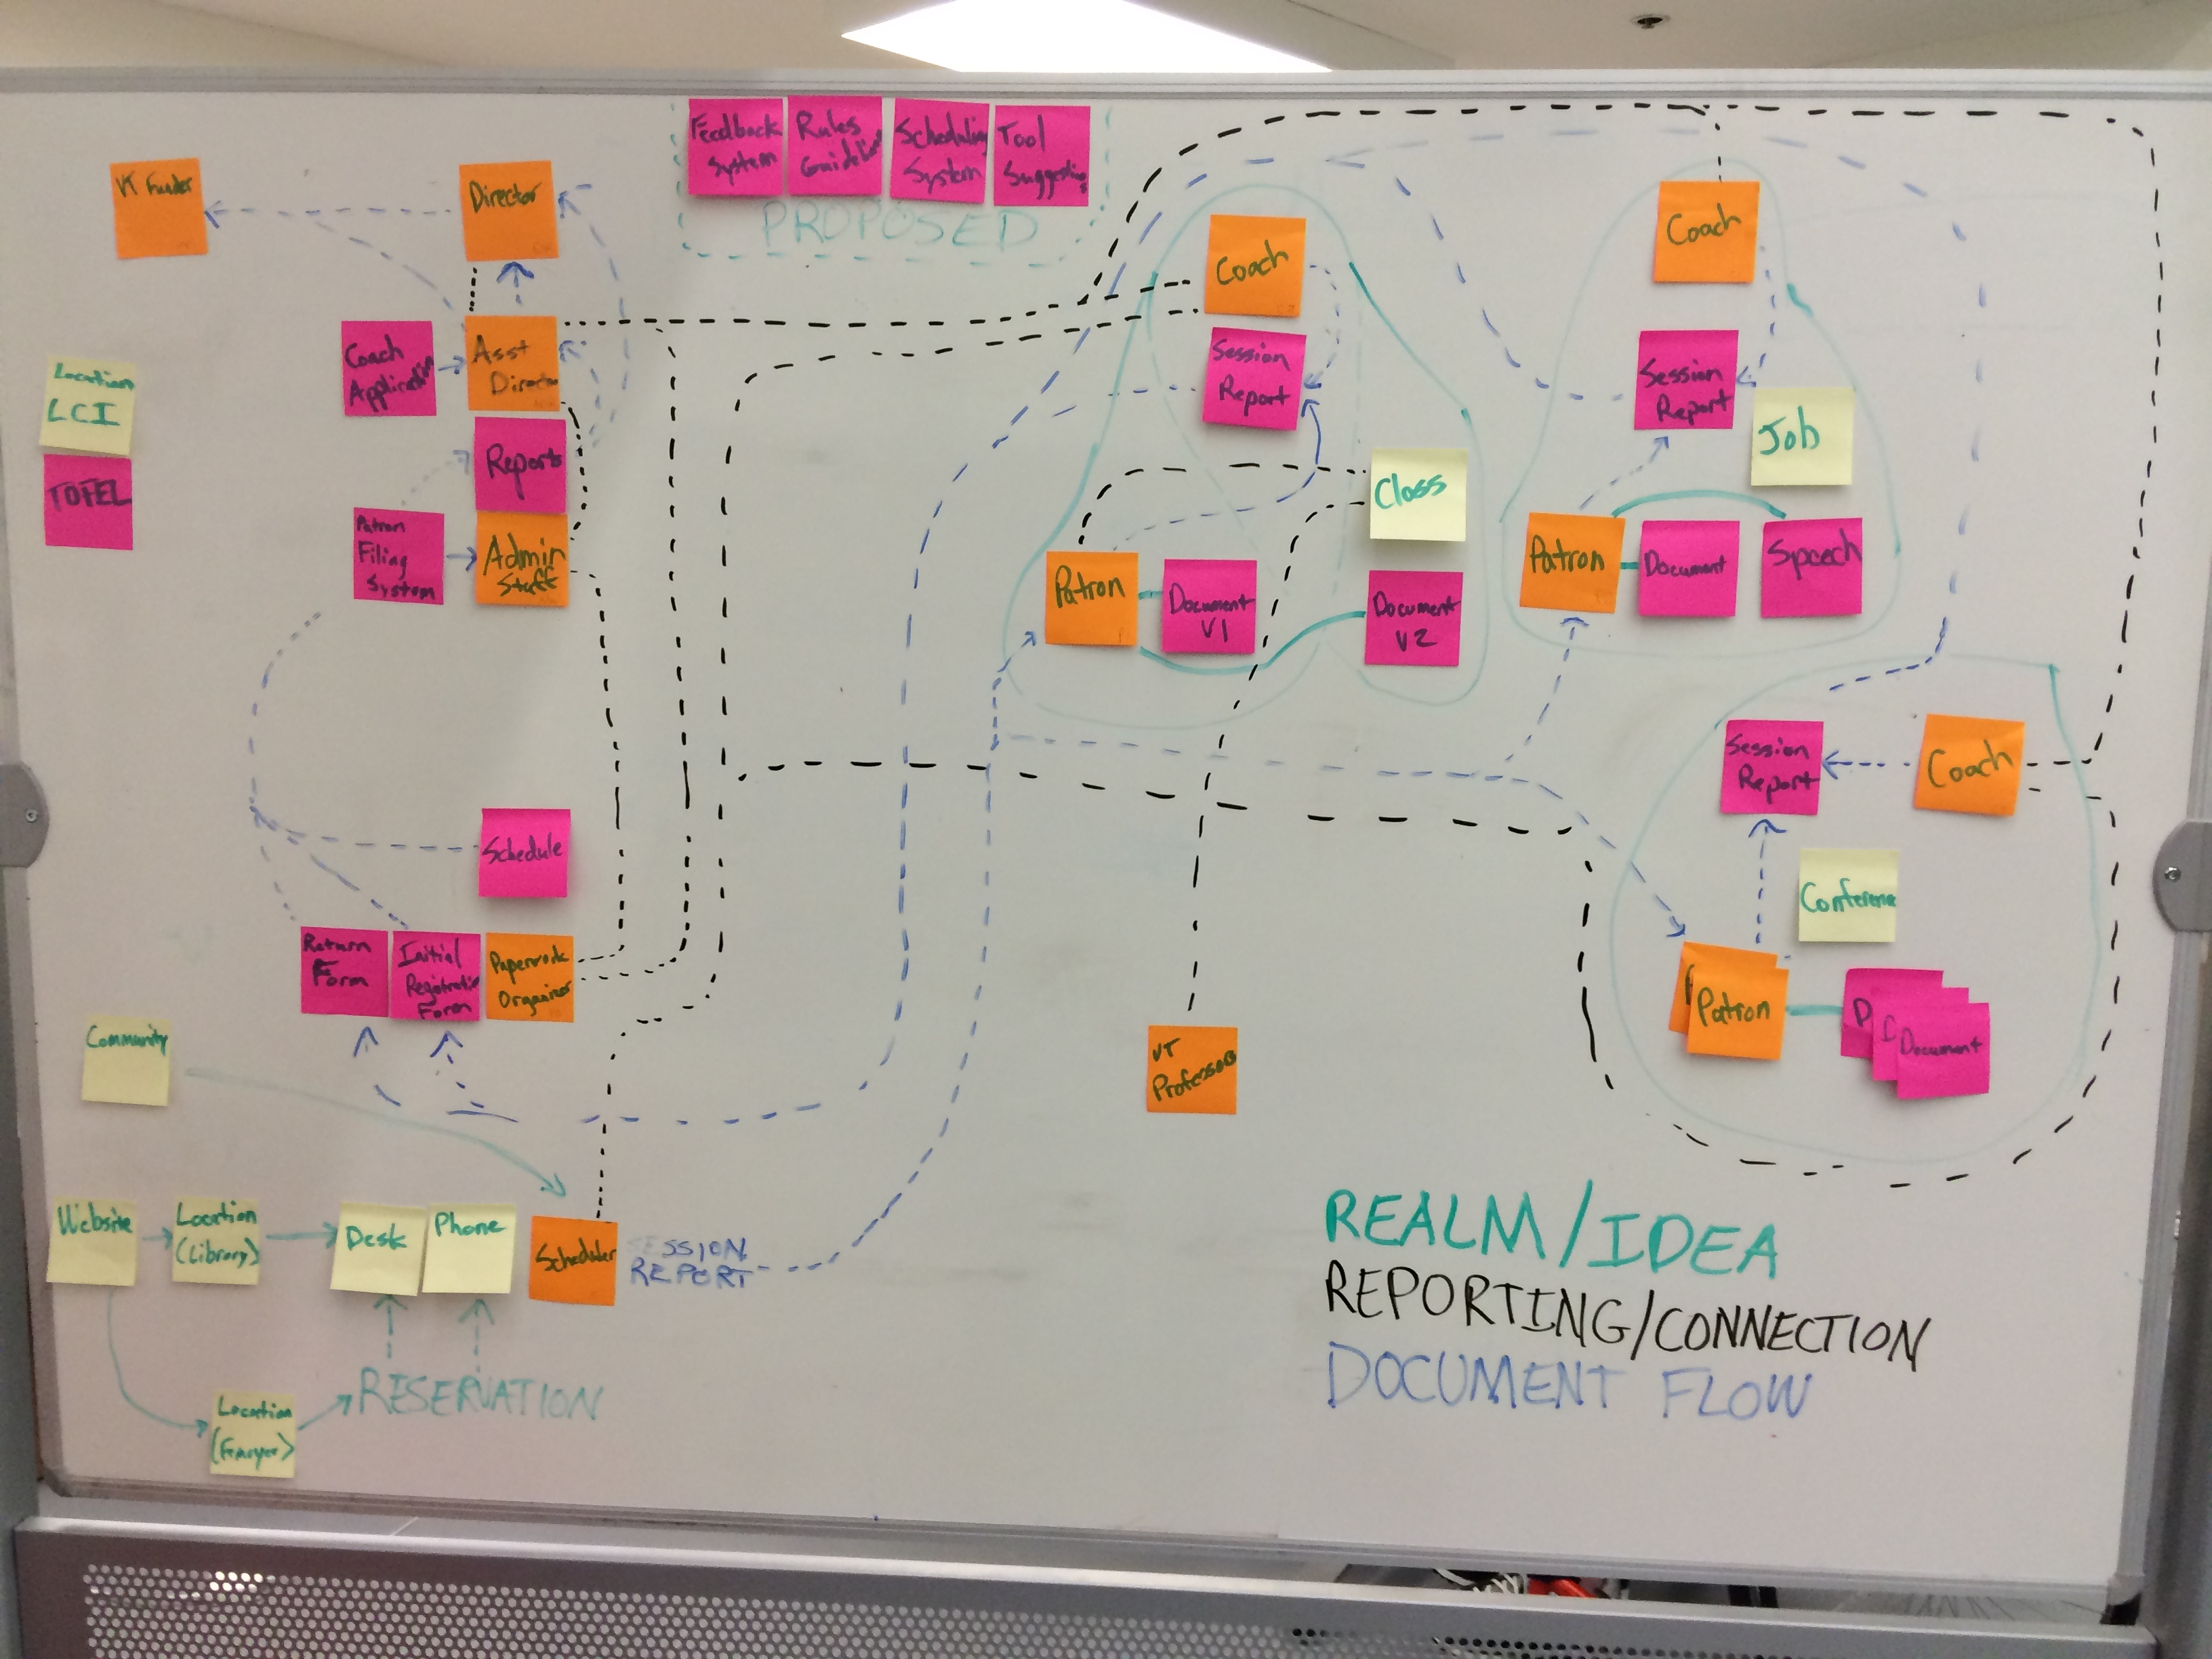 Feedback
System
Rules
Guideline
Scheduling
System
Tool
Suggestions
PROPOSED
VT Funder
Director
Coach
Application
Asst
Director
Reports
Patron
Filing
System
Admin
Staff
Location
LCI
TOFEL
Schedule
Return
Form
Initial
Registration
Form
Paperwork
Organizer
Community
Website
Location
(Library)
Desk
Phone
Scheduler
SESSION
REPORT
Location
RESERVATION
Coach
Session
Report
Class
Patron
Document
V1
Document
V2
Coach
Session
Report
Job
Patron
Document
Speech
Session
Report
Coach
Conference
P
Patron
D
Document
VT
Professor
REALM/IDEA
REPORTING/CONNECTION
DOCUMENT FLOW